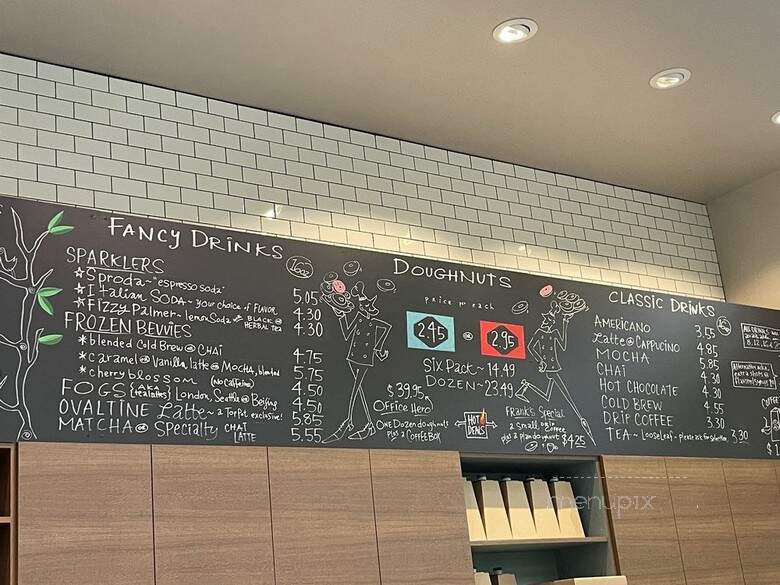 FANCY DRINKS
16oz
SPARKLERS
Sproda ~ "espresso soda" 5.05
Italian SODA ~ your choice of FLAVOR 4.30
Fizzy Palmer ~ lemon Soda BLACK HERBAL TEA 4.30
FROZEN BEVVIES
blended Cold Brew CHAI 4.75
Caramel Vanilla latte MOCHA, blended 5.75
cherry blossom (NO Caffeine) 4.50
FOGS {AKA tealattes} London, Seattle Beijing 4.50
OVALTINE Latte ~ a TopPot exclusive! 5.85
MATCHA Specialty CHAI LATTE 5.55
DOUGHNUTS
price per each
2.45 OR 2.95
SIX PACK ~ 14.49
DOZEN ~ 23.49
$39.95
Office Hero
ONE Dozen doughnuts
plus a COFFEE BOX
HOT DEALS
Frank's Special
a Small Coffee
plus a plain doughnut $4.25
CLASSIC DRINKS
AMERICANO 3.55
Latte CAPPUCINO 4.85
MOCHA 5.85
CHAI 4.30
HOT CHOCOLATE 4.30
COLD BREW 4.55
DRIP COFFEE 3.30
TEA ~ Loose Leaf ~ please ask for selection 3.30
menupix